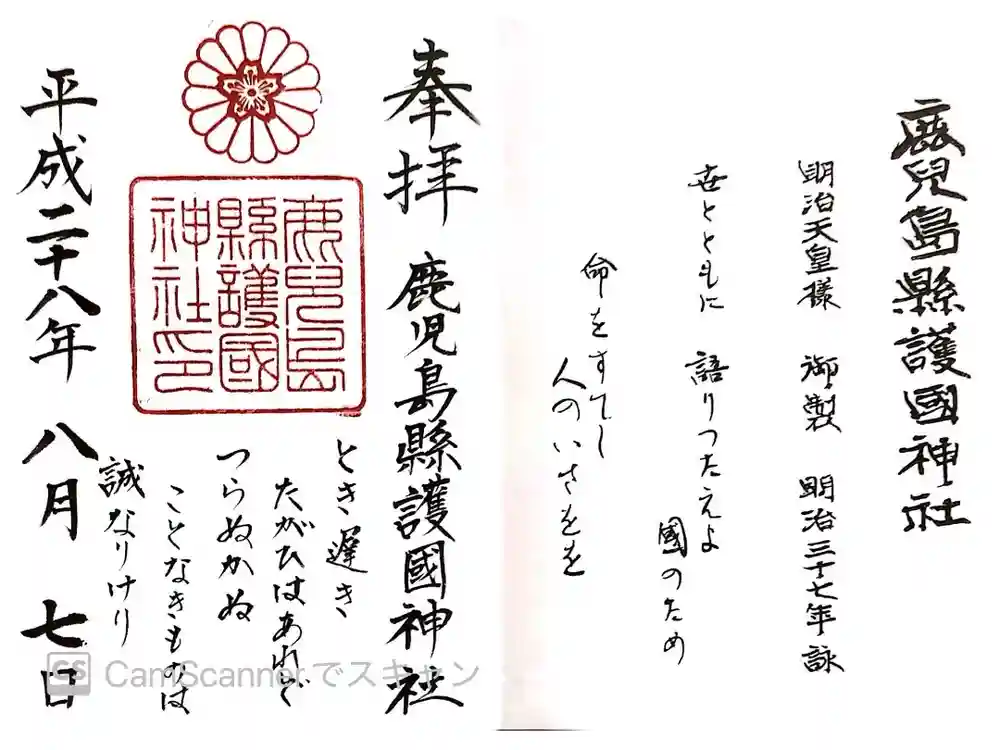 鹿兒島縣護國神社
明治天皇様 御製 明治三十七年詠
世とともに 語りつたえよ
國のため
命をすてし
人のいさをを
奉拝 鹿児島縣護國神社
とき遅き
たがひはあれど
つらぬかぬ
ことなきものは
誠なりけり
鹿兒島
縣護國
神社印
平成二十八年 八月 七日
CS CamScannerでスキャン